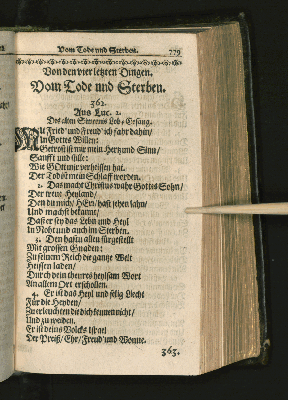 Vom Tode und Sterben. 779
Von den vier letzten Dingen.
Vom Tode und Sterben.
362.
Aus Luc. 2.
Des alten Simeonis Lob-Gesang.
Mit Fried' und Freud' ich fahr dahin/
In Gottes Willen:
Getrost ist mir mein Hertz und Sinn/
Sanfft und stille:
Wie GOtt mir verheissen hat.
Der Todt ist mein Schlaff worden.
2. Das macht Christus wahr Gottes Sohn/
Der treue Heyland/
Den du mich/ HErr/ hast sehen lahn/
Und macht bekannt/
Daß er sey das Lebn und Heyl
In Noht und auch im Sterben.
3. Den hastu allen fürgestellt
Mit grossen Gnaden:
Zu seinem Reich die gantze Welt
Heissen laden/
Durch dein theures heylsam Wort
An allem Ort erschollen.
4. Er ist das Heyl und selig Liecht
Für die Heyden/
Zu erleuchten die dich kennen nicht/
Und zu weiden.
Er ist deins Volcks Israel
Der Preiß/ Ehr/ Freud' und Wonne.
363.